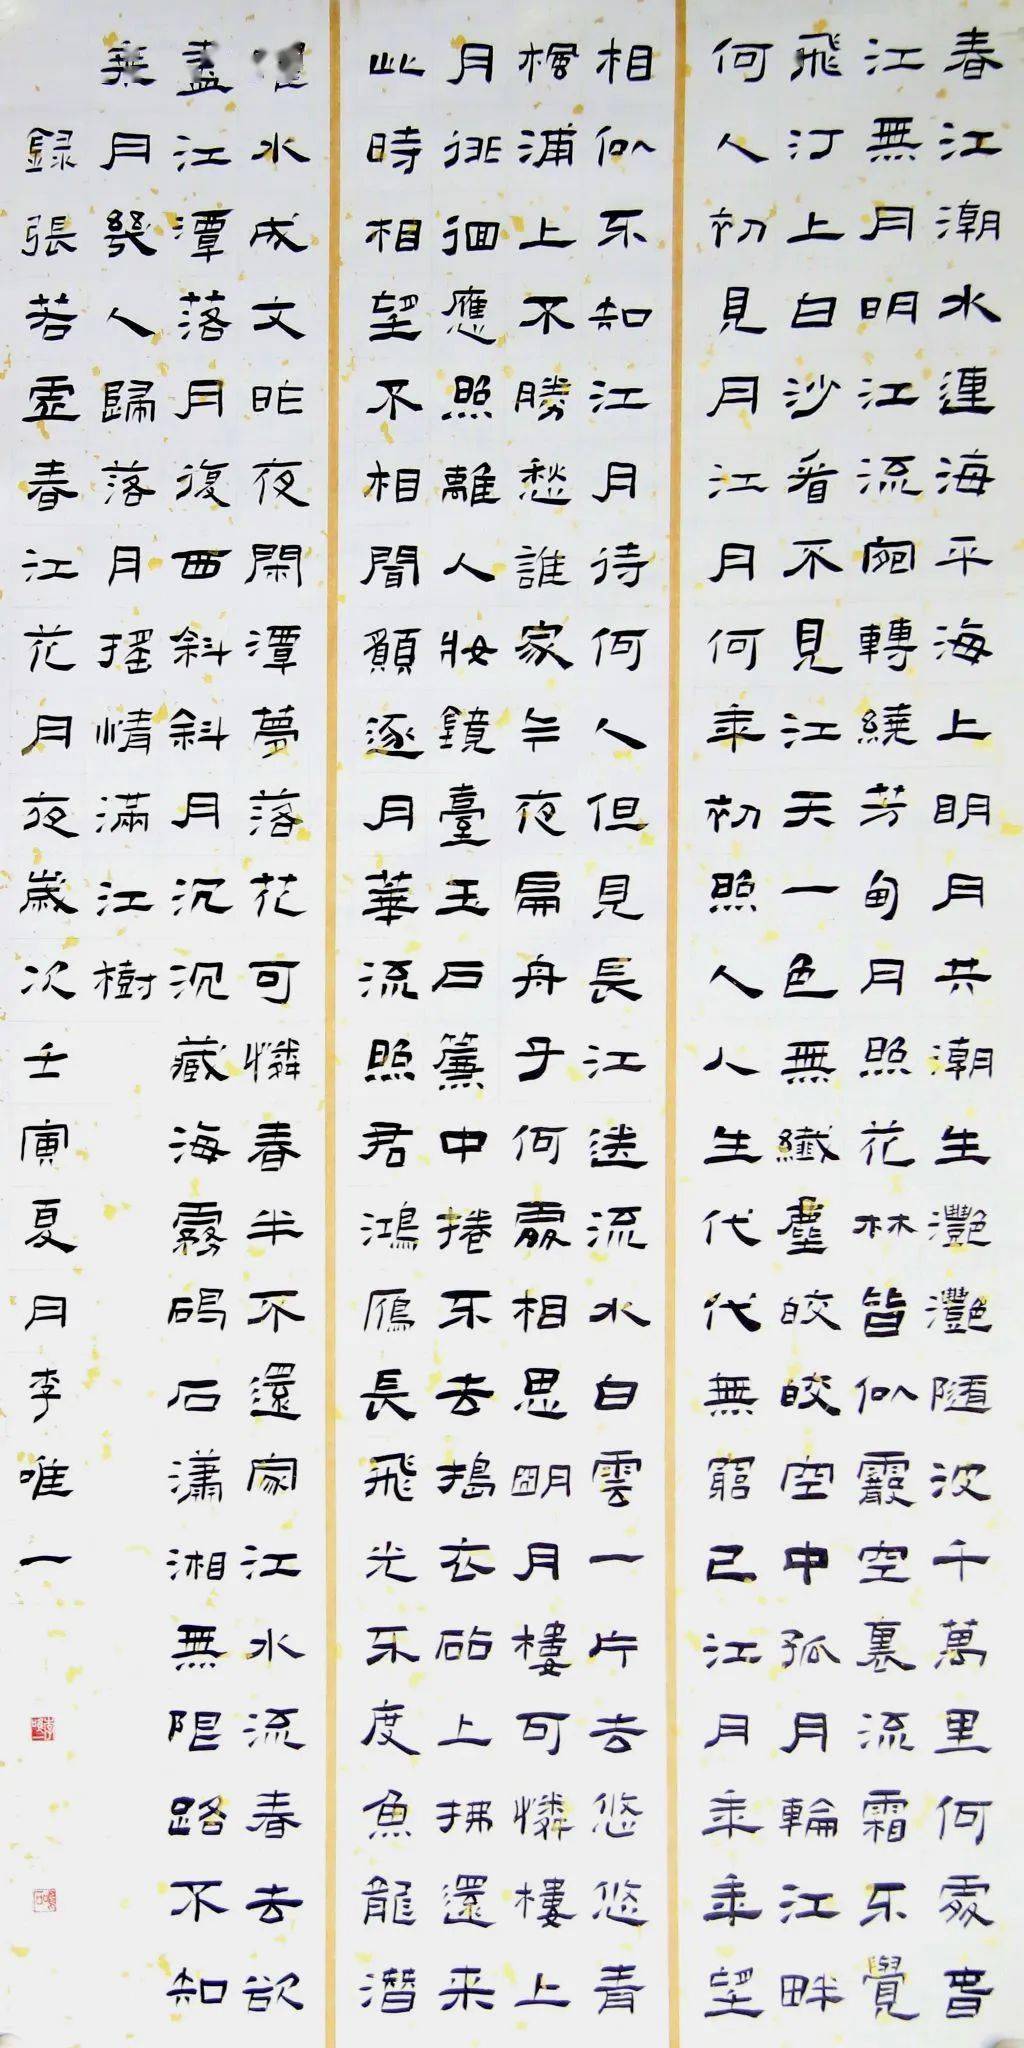 春江潮水連海平海上明月共潮生灧灧隨波千萬里何處春
江無月明江流宛轉繞芳甸月照花林皆似霰空裏流霜不覺
飛汀上白沙看不見江天一色無纖塵皎皎空中孤月輪江畔
何人初見月江月何年初照人人生代代無窮已江月年年望
相似不知江月待何人但見長江送流水白雲一片去悠悠青
楓浦上不勝愁誰家今夜扁舟子何處相思明月樓可憐樓上
月徘徊應照離人妝鏡臺玉戶簾中捲不去搗衣砧上拂還来
此時相望不相聞願逐月華流照君鴻雁長飛光不度魚龍潛
水成文昨夜閑潭夢落花可憐春半不還家江水流春去欲
盡江潭落月復西斜斜月沉沉藏海霧碣石瀟湘無限路不知
乘月幾人歸落月搖情滿江樹
録張若虛春江花月夜歲次壬寅夏月李唯一